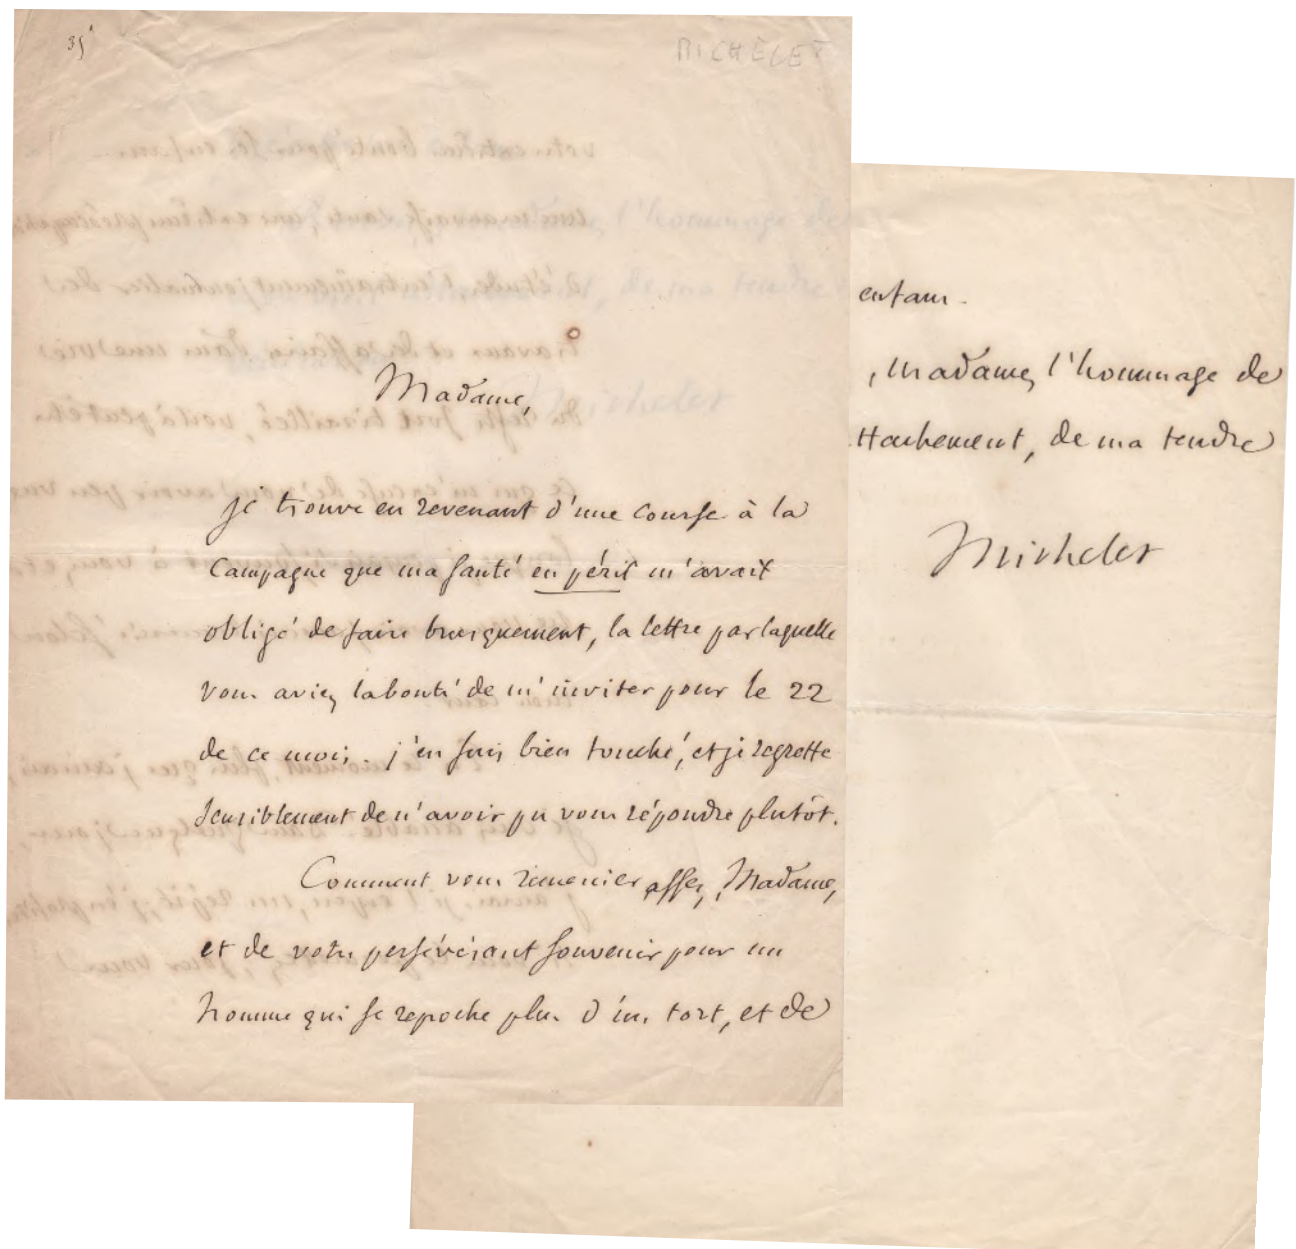 35
MICHELET
Madame,
je trouve en revenant d'une course à la
campagne que ma santé en péril m'avait
obligé de faire brusquement, la lettre par laquelle
vous aviez la bonté de m'inviter pour le 22
de ce mois. j'en suis bien touché, et je regrette
sensiblement de n'avoir pu vous répondre plutôt.
Comment vous remercier assez, Madame,
et de votre persévérant souvenir pour un
homme qui se repoche plus d'un tort, et de
enfans.
, Madame, l'hommage de
ttachement, de ma tendre
Michelet